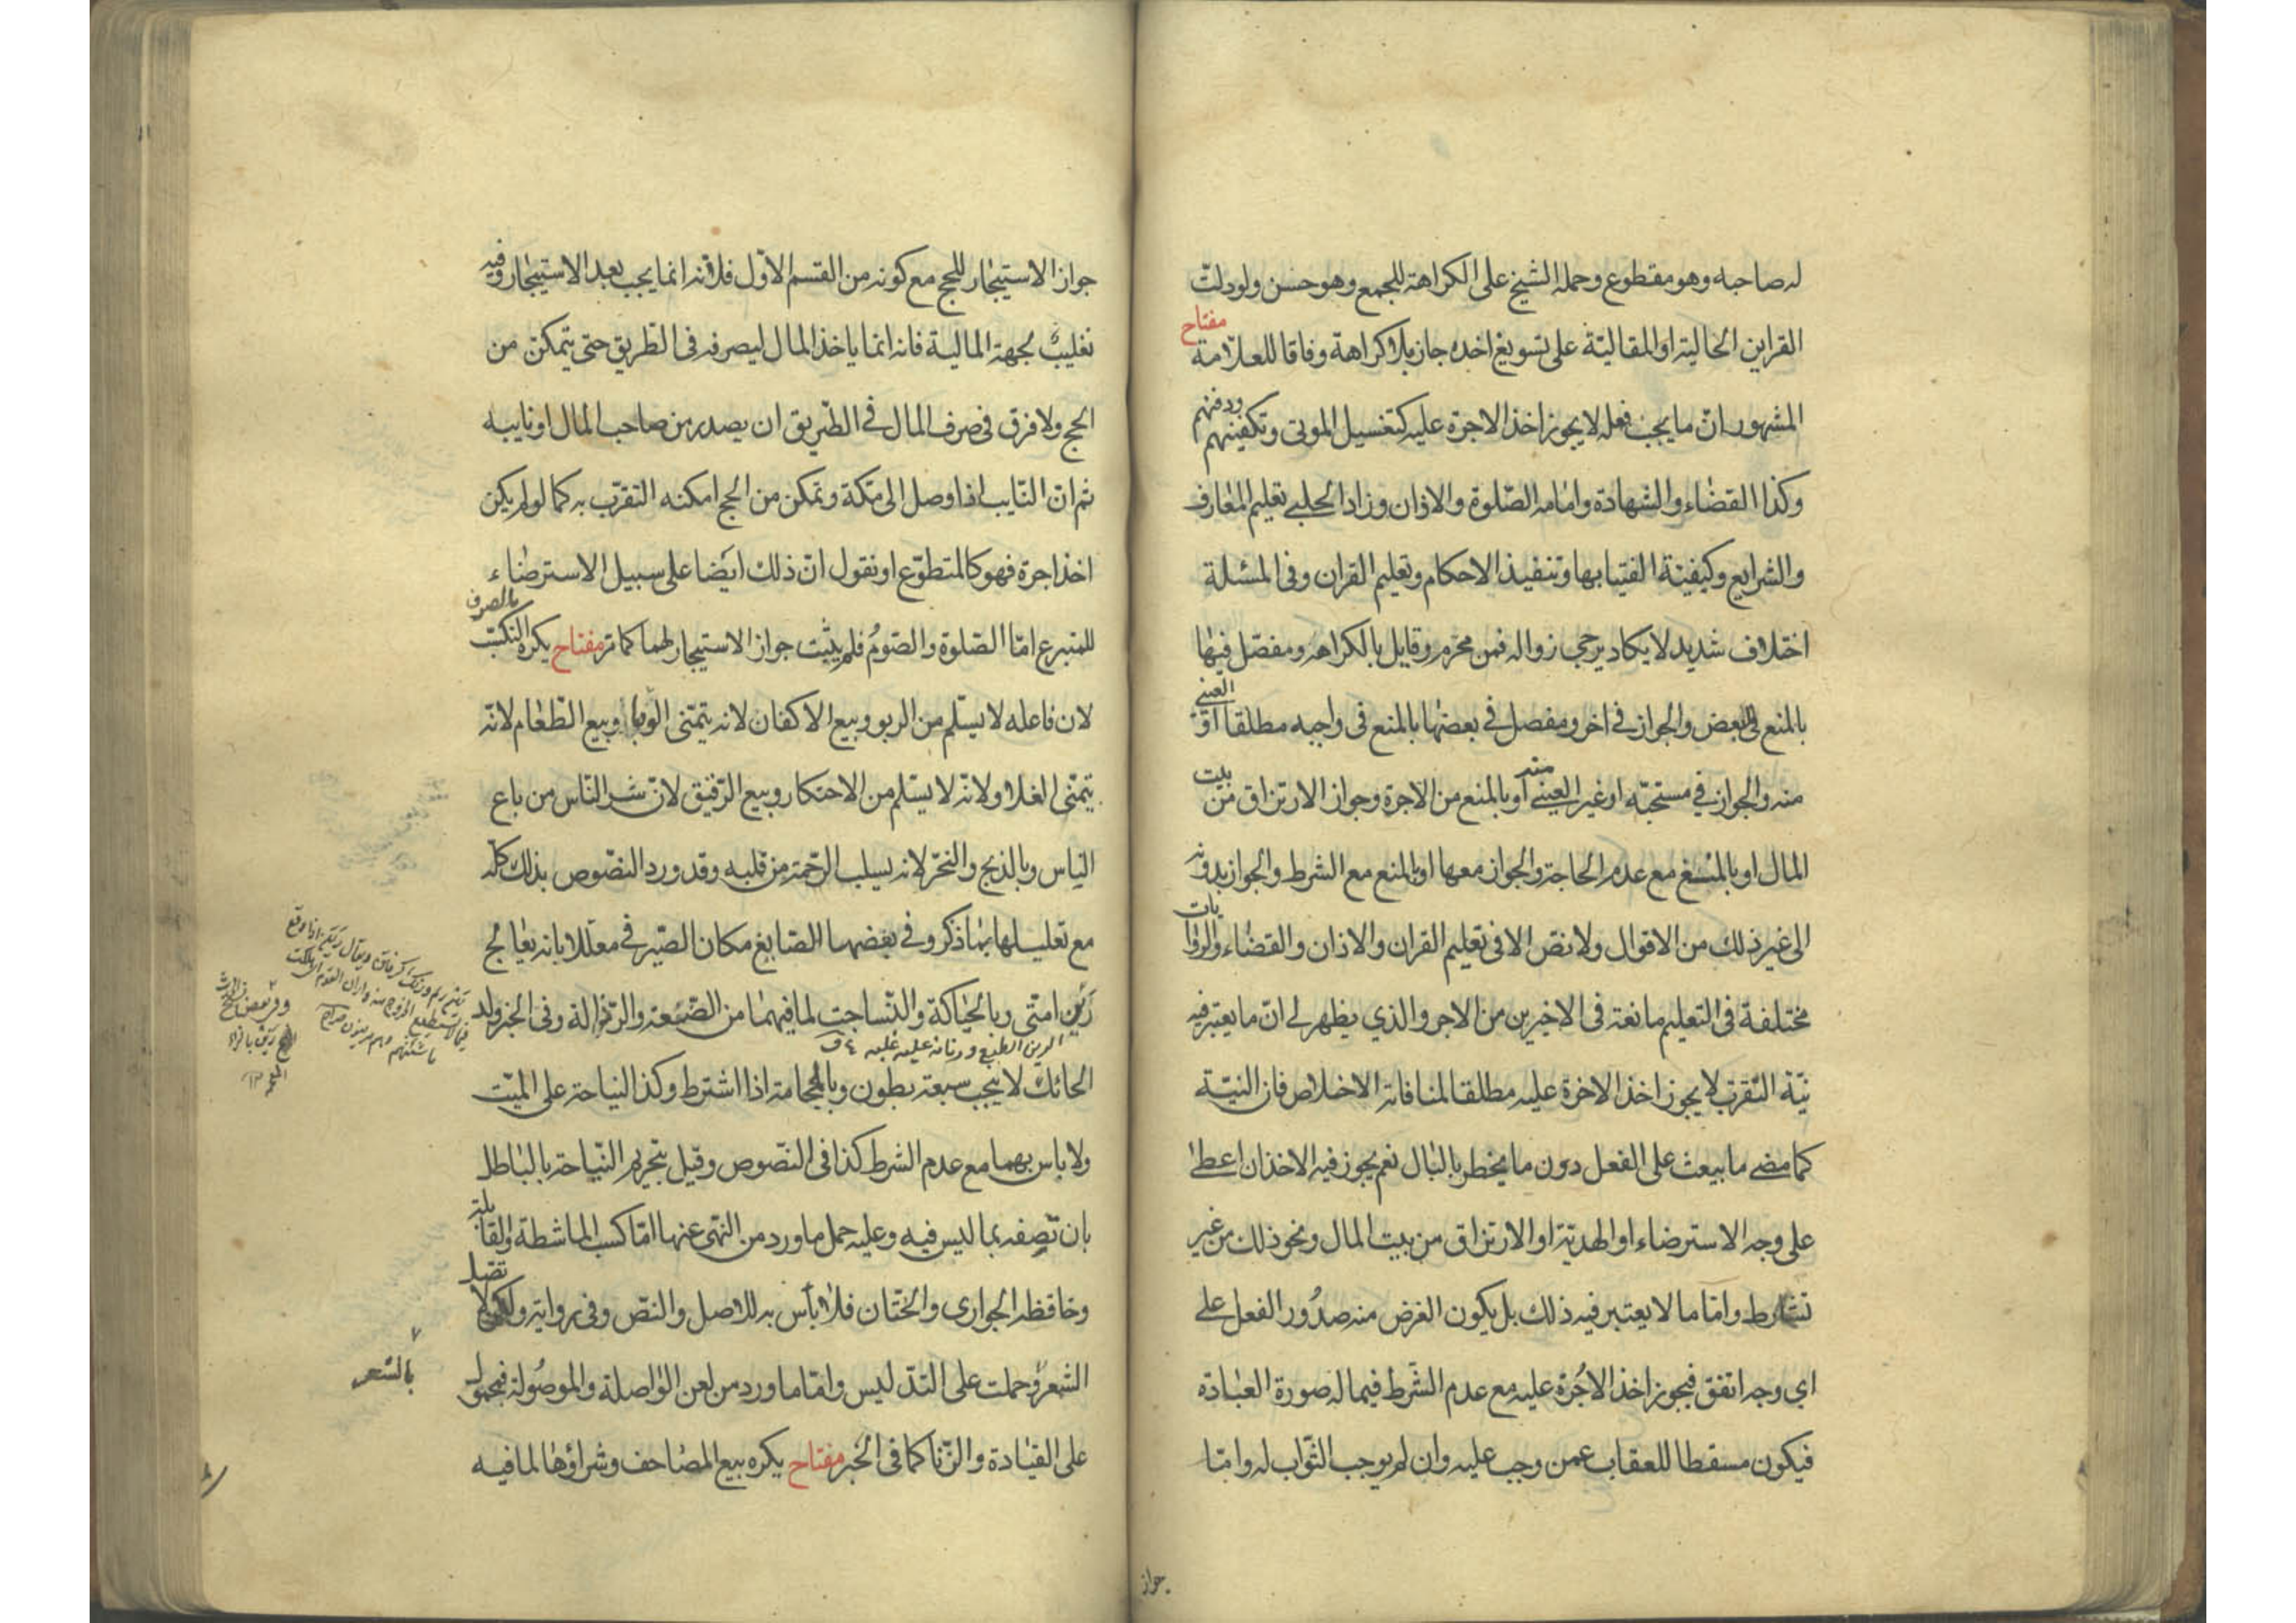 له صاحبه وهو مقطوع وحمله الشيخ على الكراهة للجمع وهو حسن ولو دلت
القراين الحالية او المقالية على تسويغ اخذه جاز بلا كراهة وفاقا للعلامة مفتاح
المشهور ان ما يجب فعله لا يجوز اخذ الاجرة عليه كتغسيل الموتى وتكفينهم ودفنهم
وكذا القضاء والشهادة وامامة الصلوة والاذان وزاد الحلبي تعليم المعارف
والشرايع وكيفية الفتيا بها وتنفيذ الاحكام وتعليم القران وفى المسئلة
اختلاف شديد لا يكاد يرجى زواله فمن محرم وقايل بالكراهة ومفصل فيها
بالمنع فى البعض والجواز في اخر ومفصل في بعضها بالمنع فى واجبه مطلقا او العينى
منه والجواز في مستحبه او غير العينى منه او بالمنع من الاجرة وجواز الارتزاق من بيت
المال او بالمنع مع عدم الحاجة والجواز معها او بالمنع مع الشرط والجواز بدونه
الى غير ذلك من الاقوال ولا نص الا فى تعليم القران والاذان والقضاء والروايات
مختلفة فى التعليم مانعة فى الاخيرين من الاجر والذي يظهر لي ان ما يعتبر فيه
نية التقرب لا يجوز اخذ الاجرة عليه مطلقا لمنافاته الاخلاص فان النية
كما مضى ما يبعث على الفعل دون ما يخطر بالبال نعم يجوز فيه الاخذ ان اعطى
على وجه الاسترضاء او الهدية او الارتزاق من بيت المال ونحو ذلك من غير
تشارط واما ما لا يعتبر فيه ذلك بل يكون الغرض منه صدور الفعل على
اي وجه اتفق فيجوز اخذ الاجرة عليه مع عدم الشرط فيما له صورة العبادة
فيكون مسقطا للعقاب عمن وجب عليه وان لم يوجب الثواب له واما
جواز
جواز الاستيجار للحج مع كونه من القسم الاول فلانه انما يجب بعد الاستيجار وفيه
تغليب لجهة المالية فانه انما ياخذ المال ليصرفه فى الطريق حتى يتمكن من
الحج ولا فرق فى صرف المال في الطريق ان يصدر من صاحب المال او نايبه
ثم ان النايب اذا وصل الى مكة وتمكن من الحج امكنه التقرب به كما لو لم يكن
اخذ اجرة فهو كالمتطوع او نقول ان ذلك ايضا على سبيل الاسترضاء
للمتبرع اما الصلوة والصوم فلم يثبت جواز الاستيجار لهما كما مر مفتاح يكره التكسب بالصرف
لان فاعله لا يسلم من الربو وبيع الاكفان لانه يتمنى الوباء وبيع الطعام لانه
يتمنى الغلاء ولانه لا يسلم من الاحتكار وبيع الرقيق لان شر الناس من باع
الناس وبالذبح والنحر لانه يسلب الرحمة من قلبه وقد ورد النصوص بذلك كله
مع تعليلها بما ذكر وفي بعضها الصايغ مكان الصيرفي معللا بانه يعالج
رين امتى وبالحياكة والنساجة لما فيهما من الضعة والرذالة وفى الخبر ولد
الرين الطبع و عليه غلبه ق
الحائك لا ينجب سبعة بطون وبالحجامة اذا اشترط وكذا النياحة على الميت
ولا باس بهما مع عدم الشرط كذا فى النصوص وقيل بتحريم النياحة بالباطل
بان تصفه بما ليس فيه وعليه حمل ما ورد من النهى عنها اما كسب الماشطة والقابلة
وخافظة الجوارى والختان فلا بأس به للاصل والنص وفى رواية ولا تصل
الشعر وحملت على التدليس واما ما ورد من لعن الواصلة والموصولة فمحمول
بالشعر
على القيادة والزنا كما فى الخبر مفتاح يكره بيع المصاحف وشراؤها لما فيه